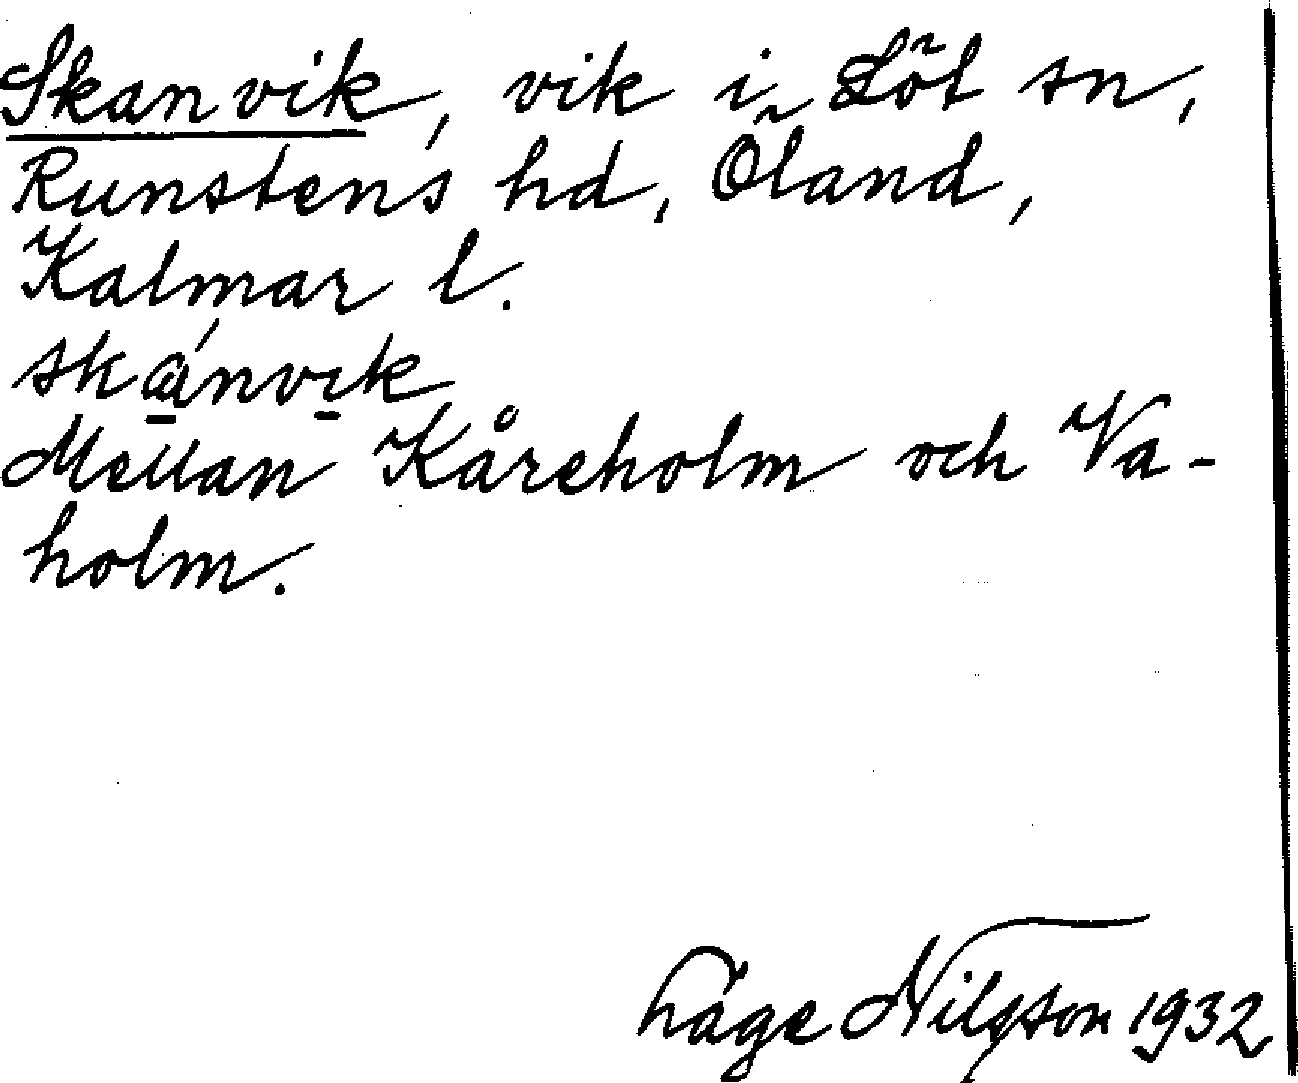 Skanvik, vik i Löt sn,
Runstens hd, Öland,
Kalmar l.
skánvik
Mellan Kåreholm och Va-
holm.
Nilsson 1932